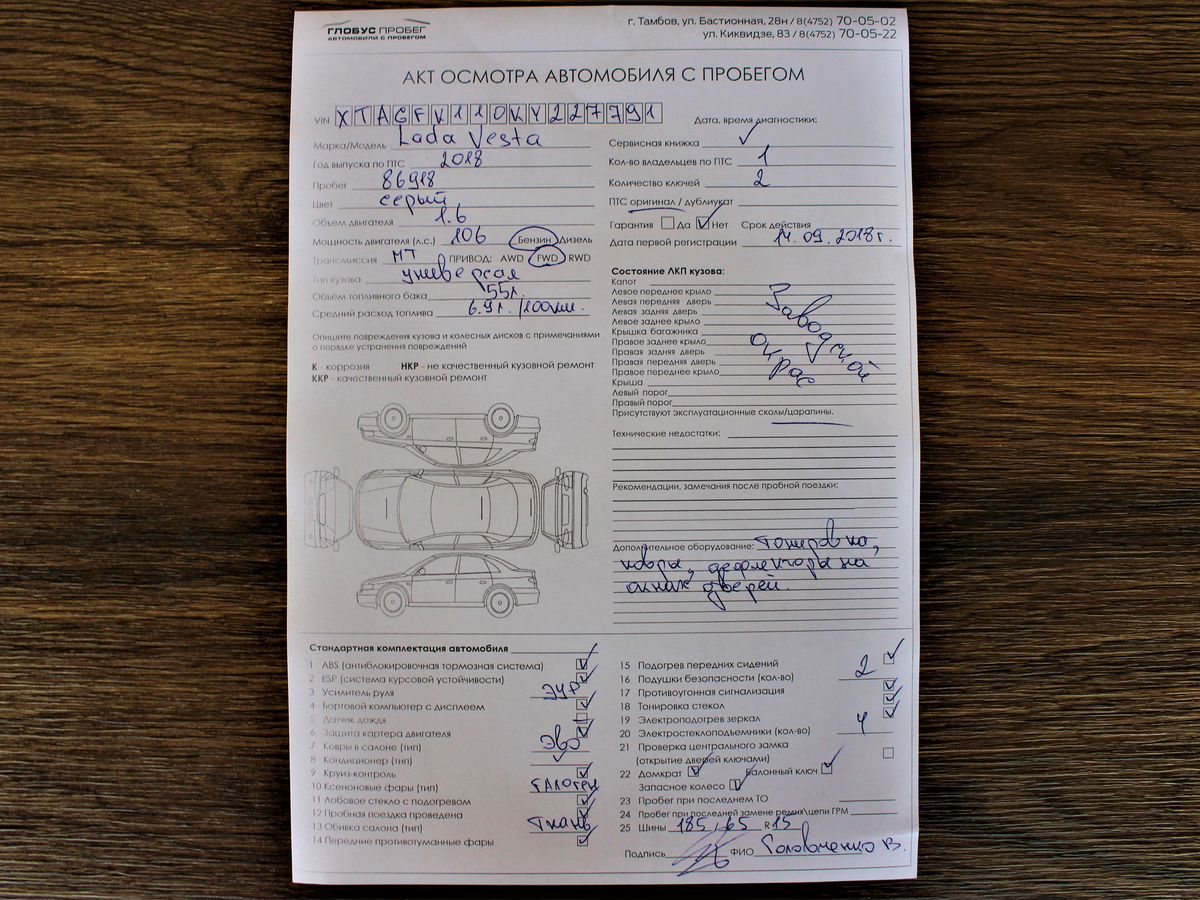 ГЛОБУС ПРОБЕГ
АВТОМОБИЛИ С ПРОБЕГОМ
г. Тамбов, ул. Бастионная, 28н / 8(4752) 70-05-02
ул. Киквидзе, 83 / 8(4752) 70-05-22
АКТ ОСМОТРА АВТОМОБИЛЯ С ПРОБЕГОМ
VIN XTAGFK110KY227791
Марка/Модель Lada Vesta
Год выпуска по ПТС 2018
Пробег 86918
Цвет серый
Объем двигателя 1.6
Мощность двигателя (л.с.) 106 Бензин Дизель
Трансмиссия МТ ПРИВОД: AWD FWD RWD
Тип кузова универсал
Объем топливного бака 55л.
Средний расход топлива 6.9л./100км.
Опишите повреждения кузова и колесных дисков с примечаниями
о порядке устранения повреждений
К - коррозия НКР - не качественный кузовной ремонт
ККР - качественный кузовной ремонт
Дата, время диагностики:
Сервисная книжка
Кол-во владельцев по ПТС 1
Количество ключей 2
ПТС оригинал / дубликат
Гарантия Да Нет Срок действия
Дата первой регистрации 14.09.2018г.
Состояние ЛКП кузова:
Капот
Левое переднее крыло
Левая передняя дверь
Левая задняя дверь
Левое заднее крыло
Крышка багажника
Правое заднее крыло
Правая задняя дверь
Правая передняя дверь
Правое переднее крыло
Крыша
Левый порог
Правый порог
Заводской
окрас
Присутствуют эксплуатационные сколы/царапины.
Технические недостатки:
Рекомендации, замечания после пробной поездки:
Дополнительное оборудование: тонировка,
ковры, дефлекторы на
окнах дверей.
Стандартная комплектация автомобиля
1 ABS (антиблокировочная тормозная система)
2 ESP (система курсовой устойчивости)
3 Усилитель руля ЭУР
4 Бортовой компьютер с дисплеем
5 Датчик дождя
6 Защита картера двигателя
7 Ковры в салоне (тип) ЭВО
8 Кондиционер (тип)
9 Круиз-контроль
10 Ксеноновые фары (тип) галоген
11 Лобовое стекло с подогревом
12 Пробная поездка проведена
13 Обивка салона (тип) ткань
14 Передние противотуманные фары
15 Подогрев передних сидений
16 Подушки безопасности (кол-во) 2
17 Противоугонная сигнализация
18 Тонировка стекол
19 Электроподогрев зеркал
20 Электростеклоподъемники (кол-во) 4
21 Проверка центрального замка
(открытие дверей ключами)
22 Домкрат Балонный ключ
Запасное колесо
23 Пробег при последнем ТО
24 Пробег при последней замене ремня\цепи ГРМ
25 Шины 185/65 R 15
Подпись ФИО Головченко В.